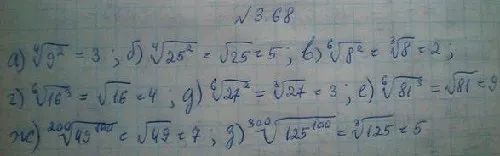 №3.68
а) ⁴√9² = 3 ; б) ⁴√25² = √25 = 5 ; в) ⁶√8² = ³√8 = 2 ;
г) ⁶√16³ = √16 = 4 ; д) ⁶√27² = ³√27 = 3 ; е) ⁶√81³ = √81 = 9
ж) ²⁰⁰√49¹⁰⁰ = √49 = 7 ; з) ³⁰⁰√125¹⁰⁰ = ³√125 = 5